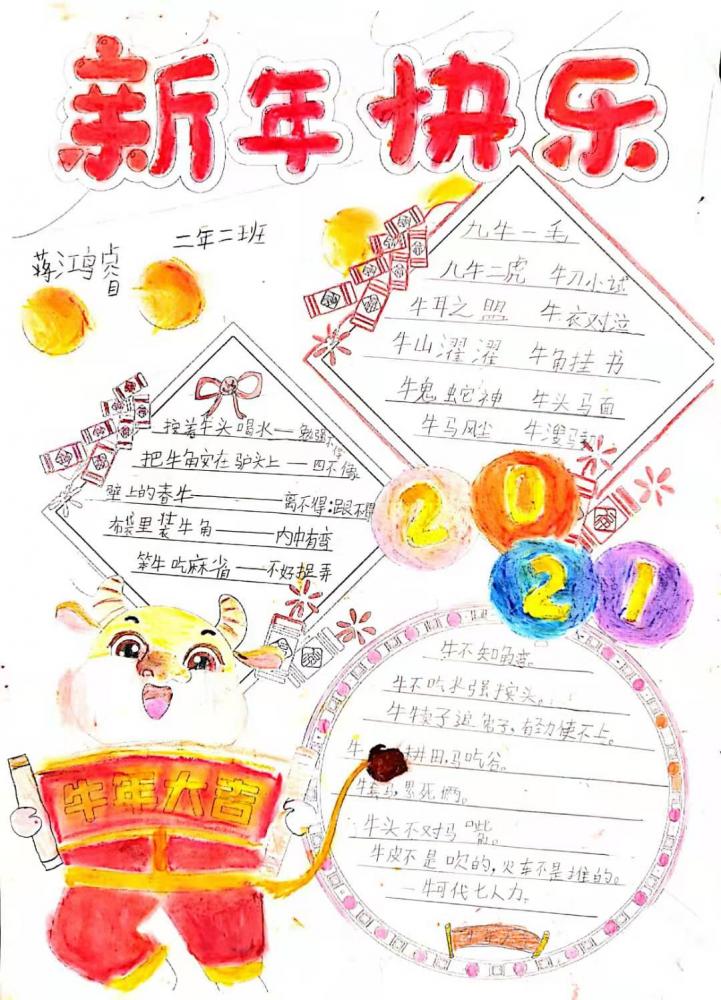 新年快乐
二年二班
蒋江鸿
九牛一毛
九牛二虎 牛刀小试
牛耳之盟 牛衣对泣
牛山濯濯 牛角挂书
牛鬼蛇神 牛头马面
牛马风尘 牛溲马
按着牛头喝水——勉强不得
把牛角安在驴头上——四不像
壁上的春牛——离不得;跟不得
布袋里装牛角——内中有弯
笨牛吃麻省——不好捉弄
2021
牛不知角弯。
牛不吃水强按头。
牛犊子追兔子,有劲使不上。
牛耕田,马吃谷。
累死俩。
牛头不对马嘴。
牛皮不是吹的,火车不是推的。
一牛可代七人力。
牛年大吉